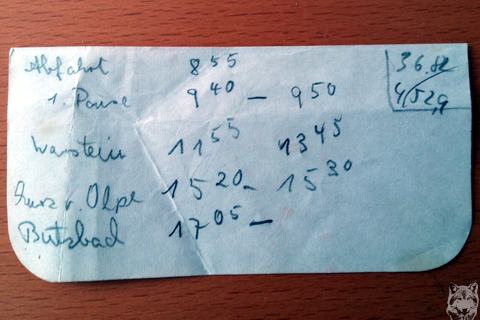 Abfahrt 8⁵⁵
1. Pause 9⁴⁰ – 9⁵⁰
Warstein 11⁵⁵ 13⁴⁵
Kurz v. Olpe 15²⁰ – 15³⁰
Butzbad 17⁰⁵ –
36.82